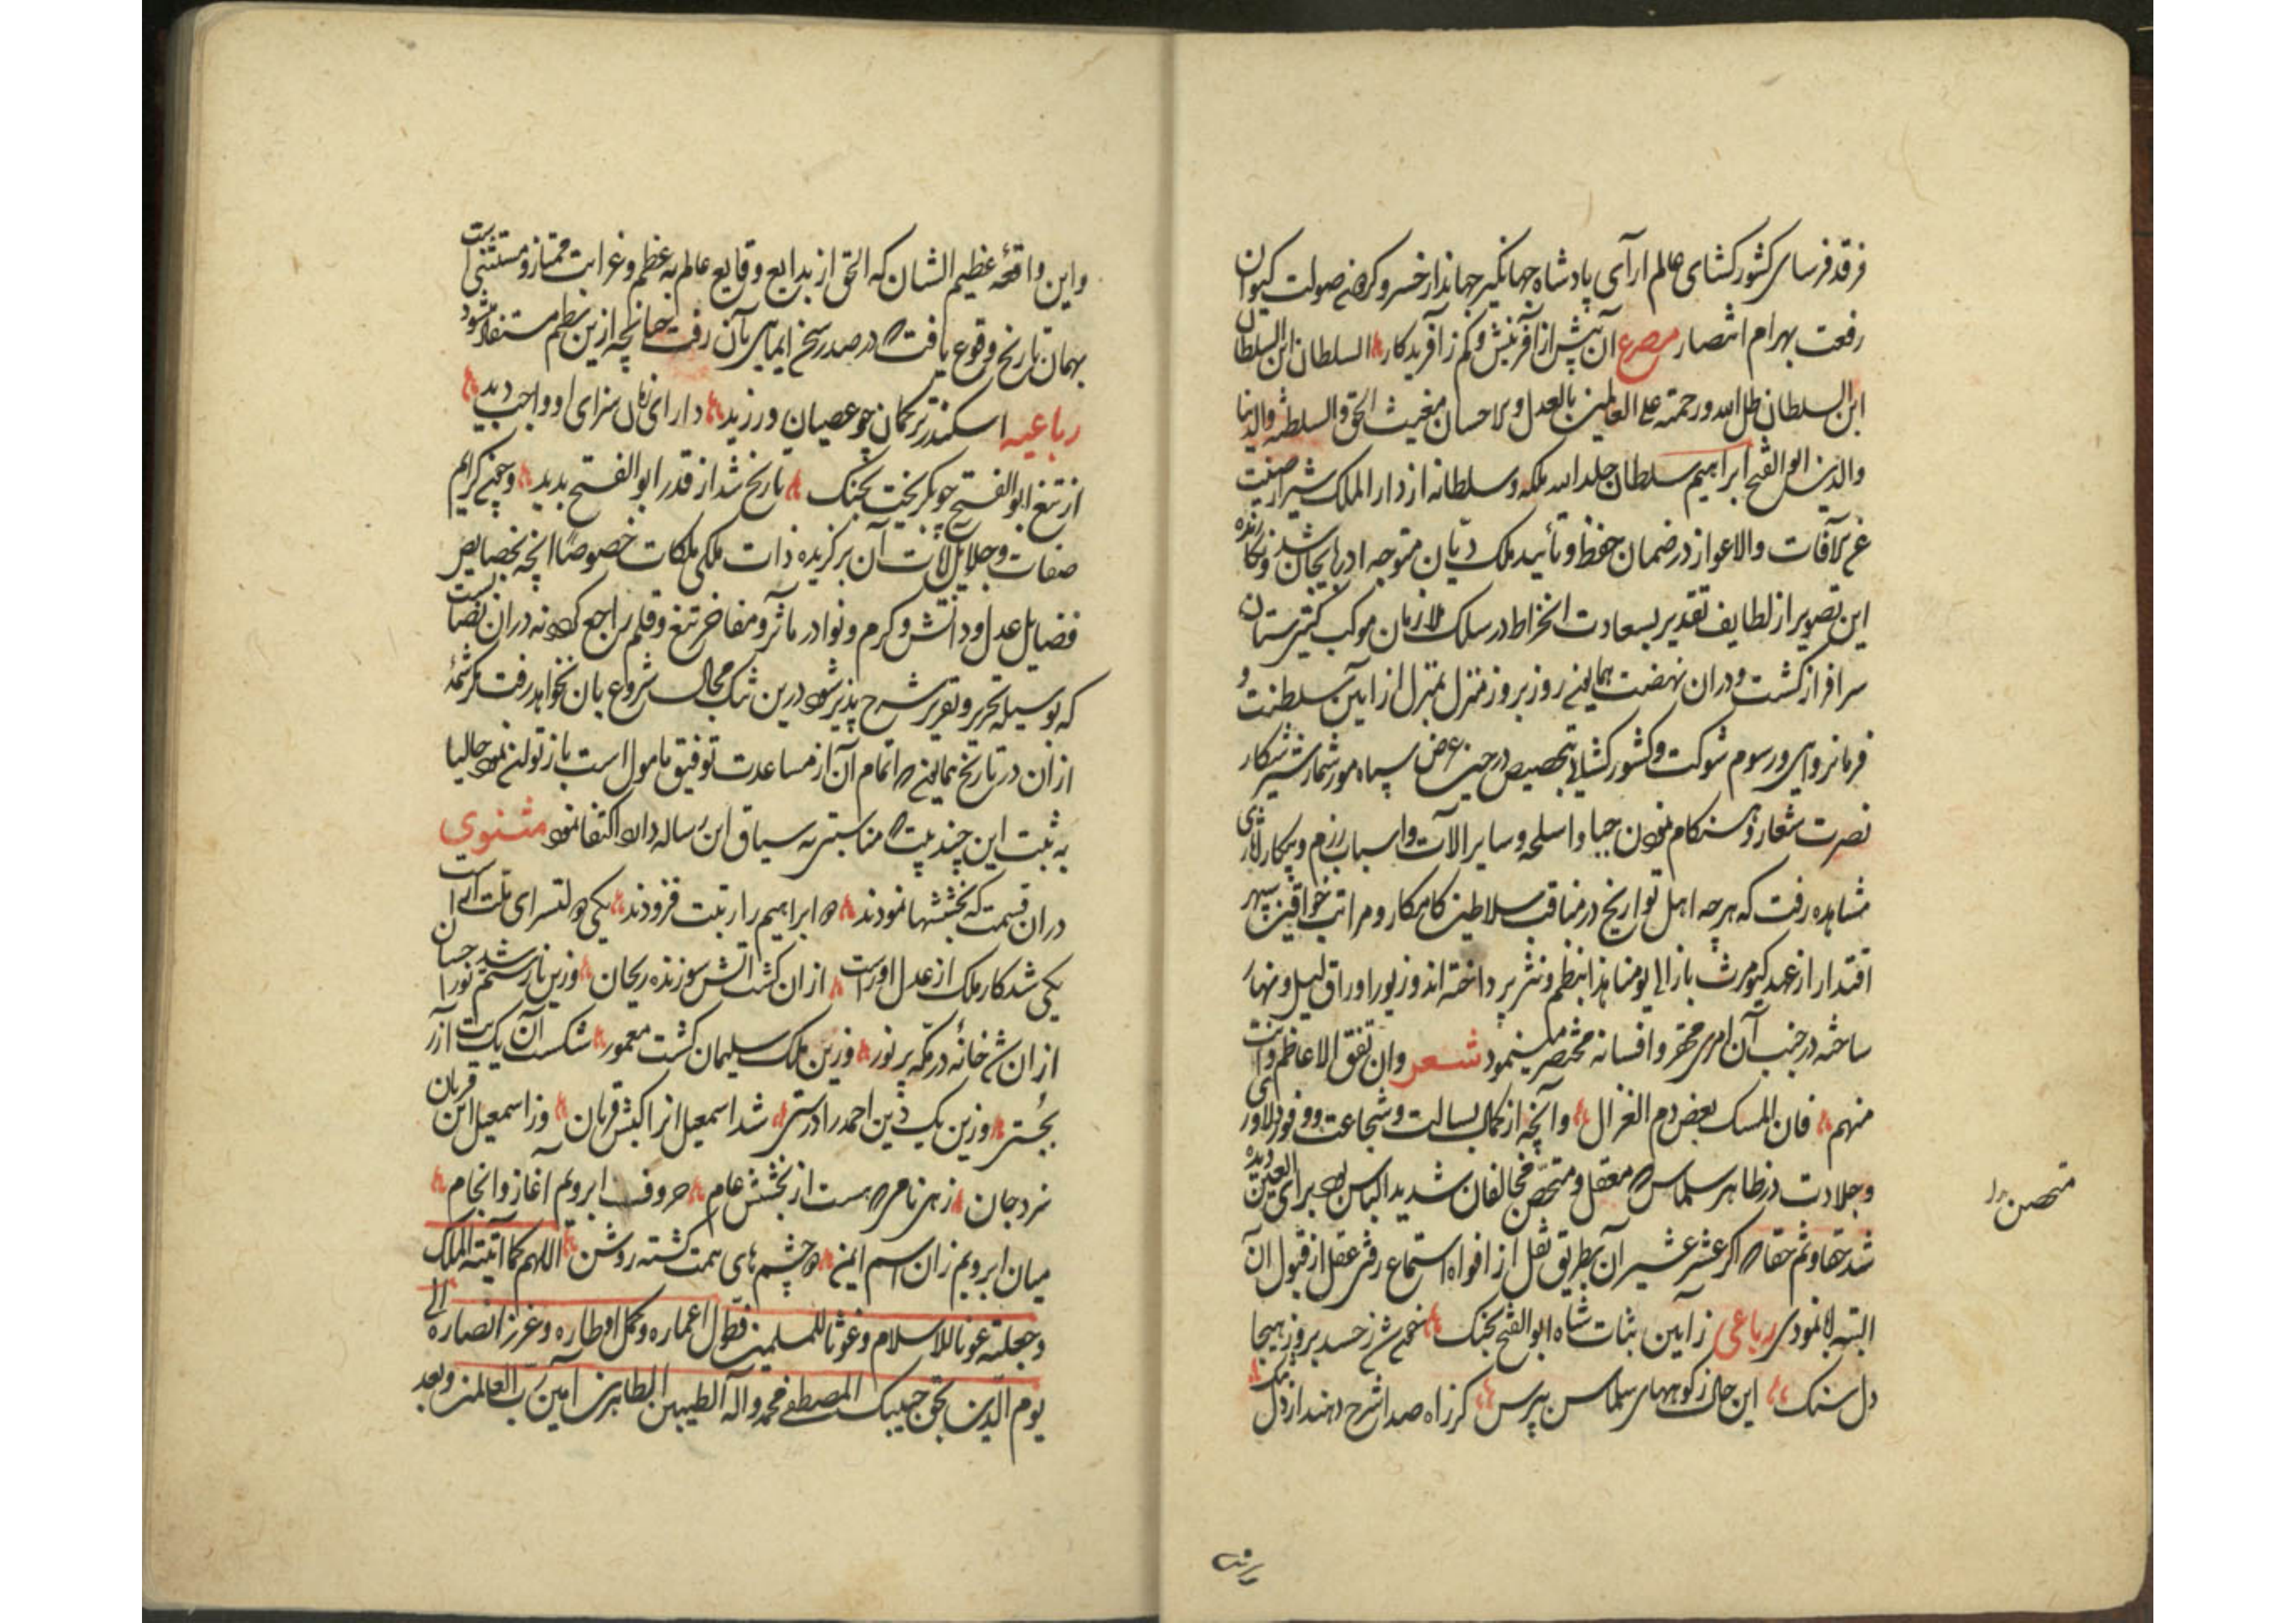 فرقد فرسای کشور کشای عالم ارآی پادشاه جهانگیر جهاندار خسرو صولت کیوان
رفعت بهرام انتصار مصرع آن پیش از آفرینش و کم ز آفریدکار السلطان ابن السلطان
ابن السلطان ظل الله و رحمته علی العالمین بالعدل والاحسان مغیث الحق والسلطنه والدنیا
والدین ابو الفتح ابراهیم سلطان خلد الله ملکه و سلطانه از دار الملک شیراز صینت
عن الآفات والاعواز در ضمان حفظ و تأیید ملک دیّان متوجه ادربایجان شد و نکارنده
این تصویر از لطایف تقدیر بسعادت انخراط در سلک ملازمان موکب کیتی ستان
سرافراز کشت و دران نهضت همایون روز بروز منزل بمنزل از آیین سلطنت و
فرمانروایی و رسوم شوکت و کشور کشایی بتخصیص در حین عرض سپاه مورشمار شیر شکار
نصرت شعار و هنکام نمودن جیبا و اسلحه و سایر الآت و اسباب رزم و پیکار
مشاهده رفت که هرچه اهل تواریخ در مناقب سلاطین کامکار و مراتب خواقین سپهر
اقتدار از عهد کیومرث باز الی یومنا هذا بنظم و نثر پرداخته اند و زیور اوراق لیل و نهار
ساخته در جنب آن امری محقر و افسانه مختصر مینمود شعر وان تفق الاعاظم وانت
منهم فان المسک بعض دم الغزال وآنچه از کمال بسالت و شجاعت و وفور دلاوری
و جلادت در ظاهر سلماس معقل و متحصّن مخالفان شدید الباس بود برای العین دیده
متحصن
شد حقا و ثم حقا که اکر عشر عشیر آن بطریق نقل از افواه استماع رفتی عقل از قبول آن
البته ابا نمودی رباعی ز آیین ثبات شاه ابو الفتح بجنک شد ز حسد بروز هیجا
دل سنک این حال ز کوههای سلماس بپرس کز راه صدا شرح دهند از دل سنک
واین واقعهٔ عظیم الشان که الحق از بدایع وقایع عالم به عظم و غرابت ممتاز و مستثنی است
بهمان تاریخ وقوع یافت که در صدر سخن ایمایی بآن رفت چنانچه ازین نظم مستفاد میشود
رباعیه اسکندر ترکمان چو عصیان ورزید دارای زمان سزای او واجب دید
از تیغ ابو الفتح چو بکریخت بجنک تاریخ شد از قدر ابو الفتح بدید و چون کرایم
صفات و جلایل آن برکزیده ذات ملکی ملکات خصوصاً انچه بخصایص
فضایل عدل و دانش و کرم و نوادر مآثر و مفاخر تیغ و قلم راجع کردد نه دران نصاب است
که بوسیله تحریر و تقریر شرح پذیر شود درین تنک مجال شروع بان نخواهد رفت کرشمهٔ
ازان در تاریخ همایون که اتمام آن از مساعدت توفیق مامول است باز توان نمود حالیا
به ثبت این چند بیت که مناسبتی به سیاق این رساله دارد اکتفا نمود مثنوی
دران قسمت که بخششها نمودند دو ابراهیم را رتبت فزودند یکی دولتسرای ملت آراست
یکی شد کار ملک از عدل او راست ازان کشت آتش سوزنده ریحان وزین نار ستم نور احسان
ازان شد خانه در مکه پر نور وزین ملک سلیمان کشت معمور شکست آن یک بت آزر
وزین یک دین احمد را درستی شد اسمعیل انرا کبش قربان وز اسمعیل این قربان
نبرد جان هست از بخشش عام حروف ابرویم آغاز و انجام
میان ابرویم زان اسم ایمن دو چشم های همت کشته روشن اللهم کما آتیته الملک
وجعلته عونا للاسلام وغوثا للمسلمین فطوّل اعماره وکمّل اوطاره وعزز انصاره الی
یوم الدین بحق حبیبک المصطفی محمد وآله الطیبین الطاهرین آمین رب العالمین وبعد